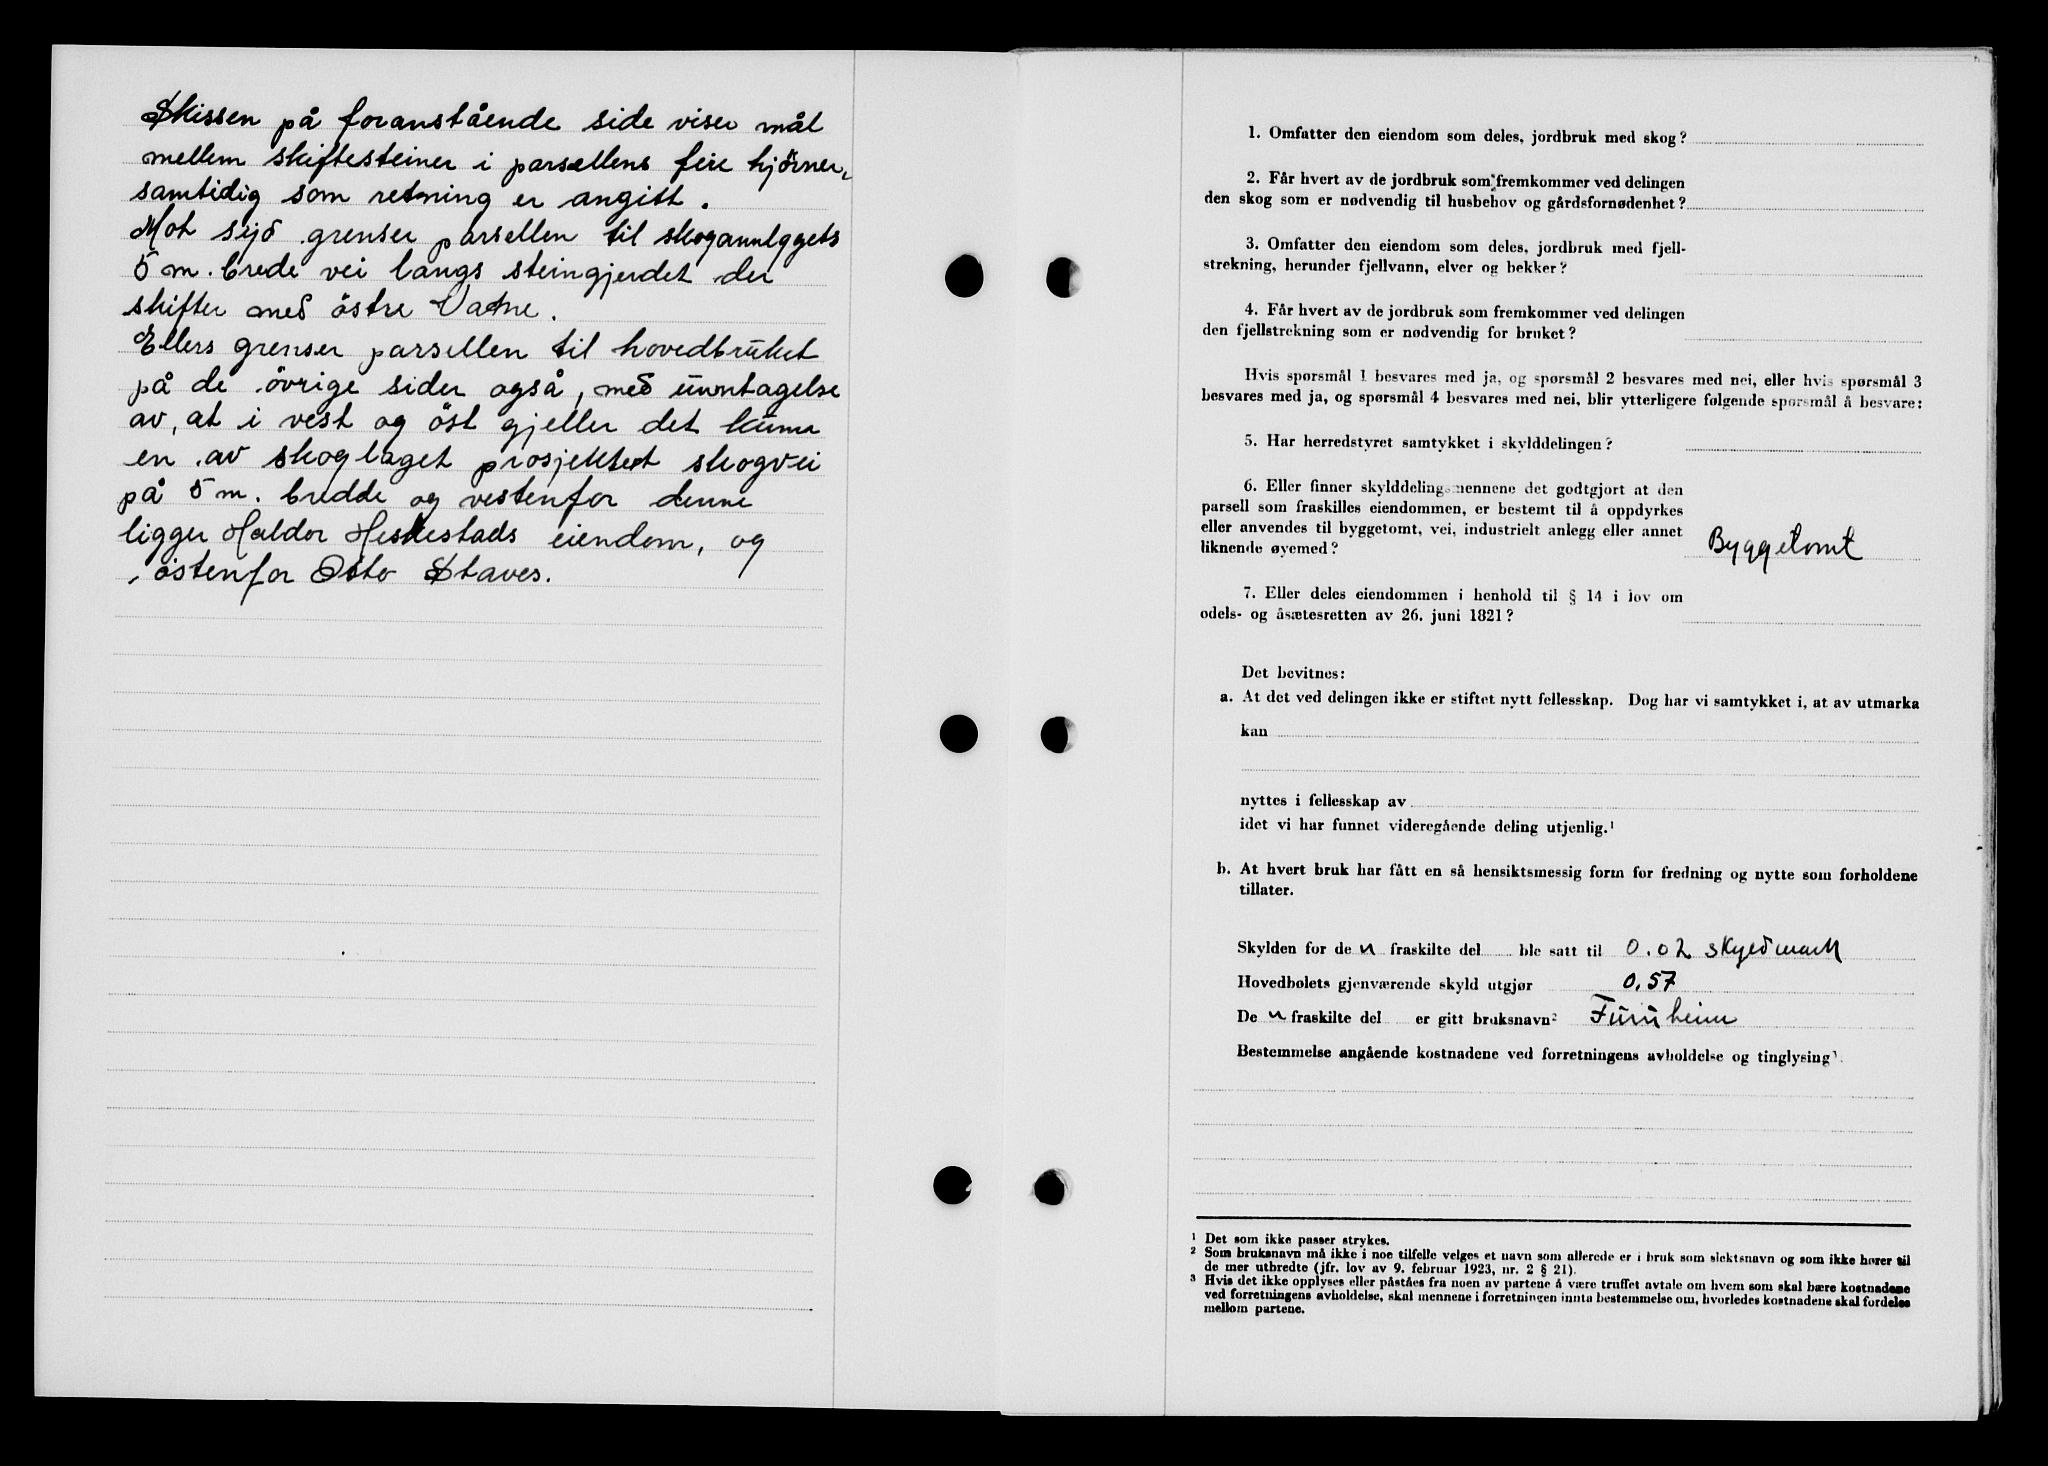 Skissen på foranstående side viser mål
mellem skiftesteiner i parsellens feire hjörner,
samtidig som retning er angitt.
Mot syd grenser parsellen til skoganlggets
5 m. brede vei langs steingjerdet der
skifter med östre Vatne.
Ellers grenser parsellen til hovedbruket
på de övrige sider også, med unntagelse
av, at i vest og öst gjeller det kunn
en av skoglaget prosjektert skogvei
på 5 m. bredde og vestenfor denne
ligger Haldor Heskestads eiendom, og
östenfor Otto Staves.
1. Omfatter den eiendom som deles, jordbruk med skog?
2. Får hvert av de jordbruk som fremkommer ved delingen
den skog som er nødvendig til husbehov og gårdsfornødenhet?
3. Omfatter den eiendom som deles, jordbruk med fjell-
strekning, herunder fjellvann, elver og bekker?
4. Får hvert av de jordbruk som fremkommer ved delingen
den fjellstrekning som er nødvendig for bruket?
Hvis spørsmål 1 besvares med ja, og spørsmål 2 besvares med nei, eller hvis spørsmål 3
besvares med ja, og spørsmål 4 besvares med nei, blir ytterligere følgende spørsmål å besvare:
5. Har herredstyret samtykket i skylddelingen?
6. Eller finner skylddelingsmennene det godtgjort at den
parsell som fraskilles eiendommen, er bestemt til å oppdyrkes
eller anvendes til byggetomt, vei, industrielt anlegg eller annet
liknende øyemed? Byggetomt
7. Eller deles eiendommen i henhold til § 14 i lov om
odels- og åsætesretten av 26. juni 1821?
Det bevitnes:
a. At det ved delingen ikke er stiftet nytt fellesskap. Dog har vi samtykket i, at av utmarka
kan
nyttes i fellesskap av
idet vi har funnet videregående deling utjenlig.¹
b. At hvert bruk har fått en så hensiktsmessig form for fredning og nytte som forholdene
tillater.
Skylden for de n fraskilte del ble satt til 0.02 skyldmark
Hovedbølets gjenværende skyld utgjør 0.57
De n fraskilte del er gitt bruksnavn² Furuheim
Bestemmelse angående kostnadene ved forretningens avholdelse og tinglysing³.
¹ Det som ikke passer strykes.
² Som bruksnavn må ikke i noe tilfelle velges et navn som allerede er i bruk som slektsnavn og som ikke hører til
de mer utbredte (jfr. lov av 9. februar 1923, nr. 2 § 21).
³ Hvis det ikke opplyses eller påståes fra noen av partene å være truffet avtale om hvem som skal bære kostnadene
ved forretningens avholdelse, skal mennene i forretningen innta bestemmelse om, hvorledes kostnadene skal fordeles
mellom partene.